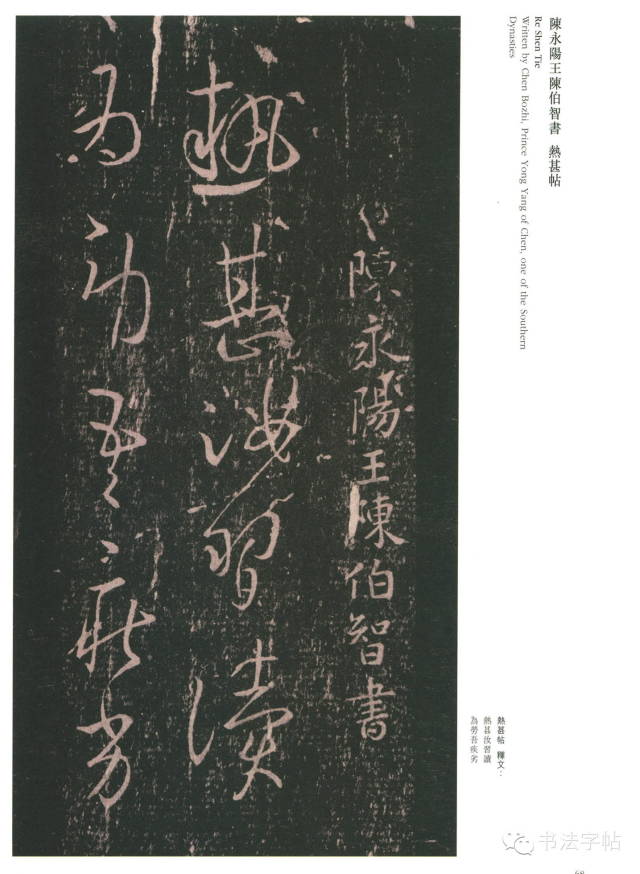 陳永陽王陳伯智書 熱甚帖
Re Shen Tie
Written by Chen Bozhi, Prince Yong Yang of Chen, one of the Southern
Dynasties
陳永陽王陳伯智書
熱甚汝習讀
為勞吾疾劣
熱甚帖 釋文：
熱甚汝習讀
為勞吾疾劣
书法字帖